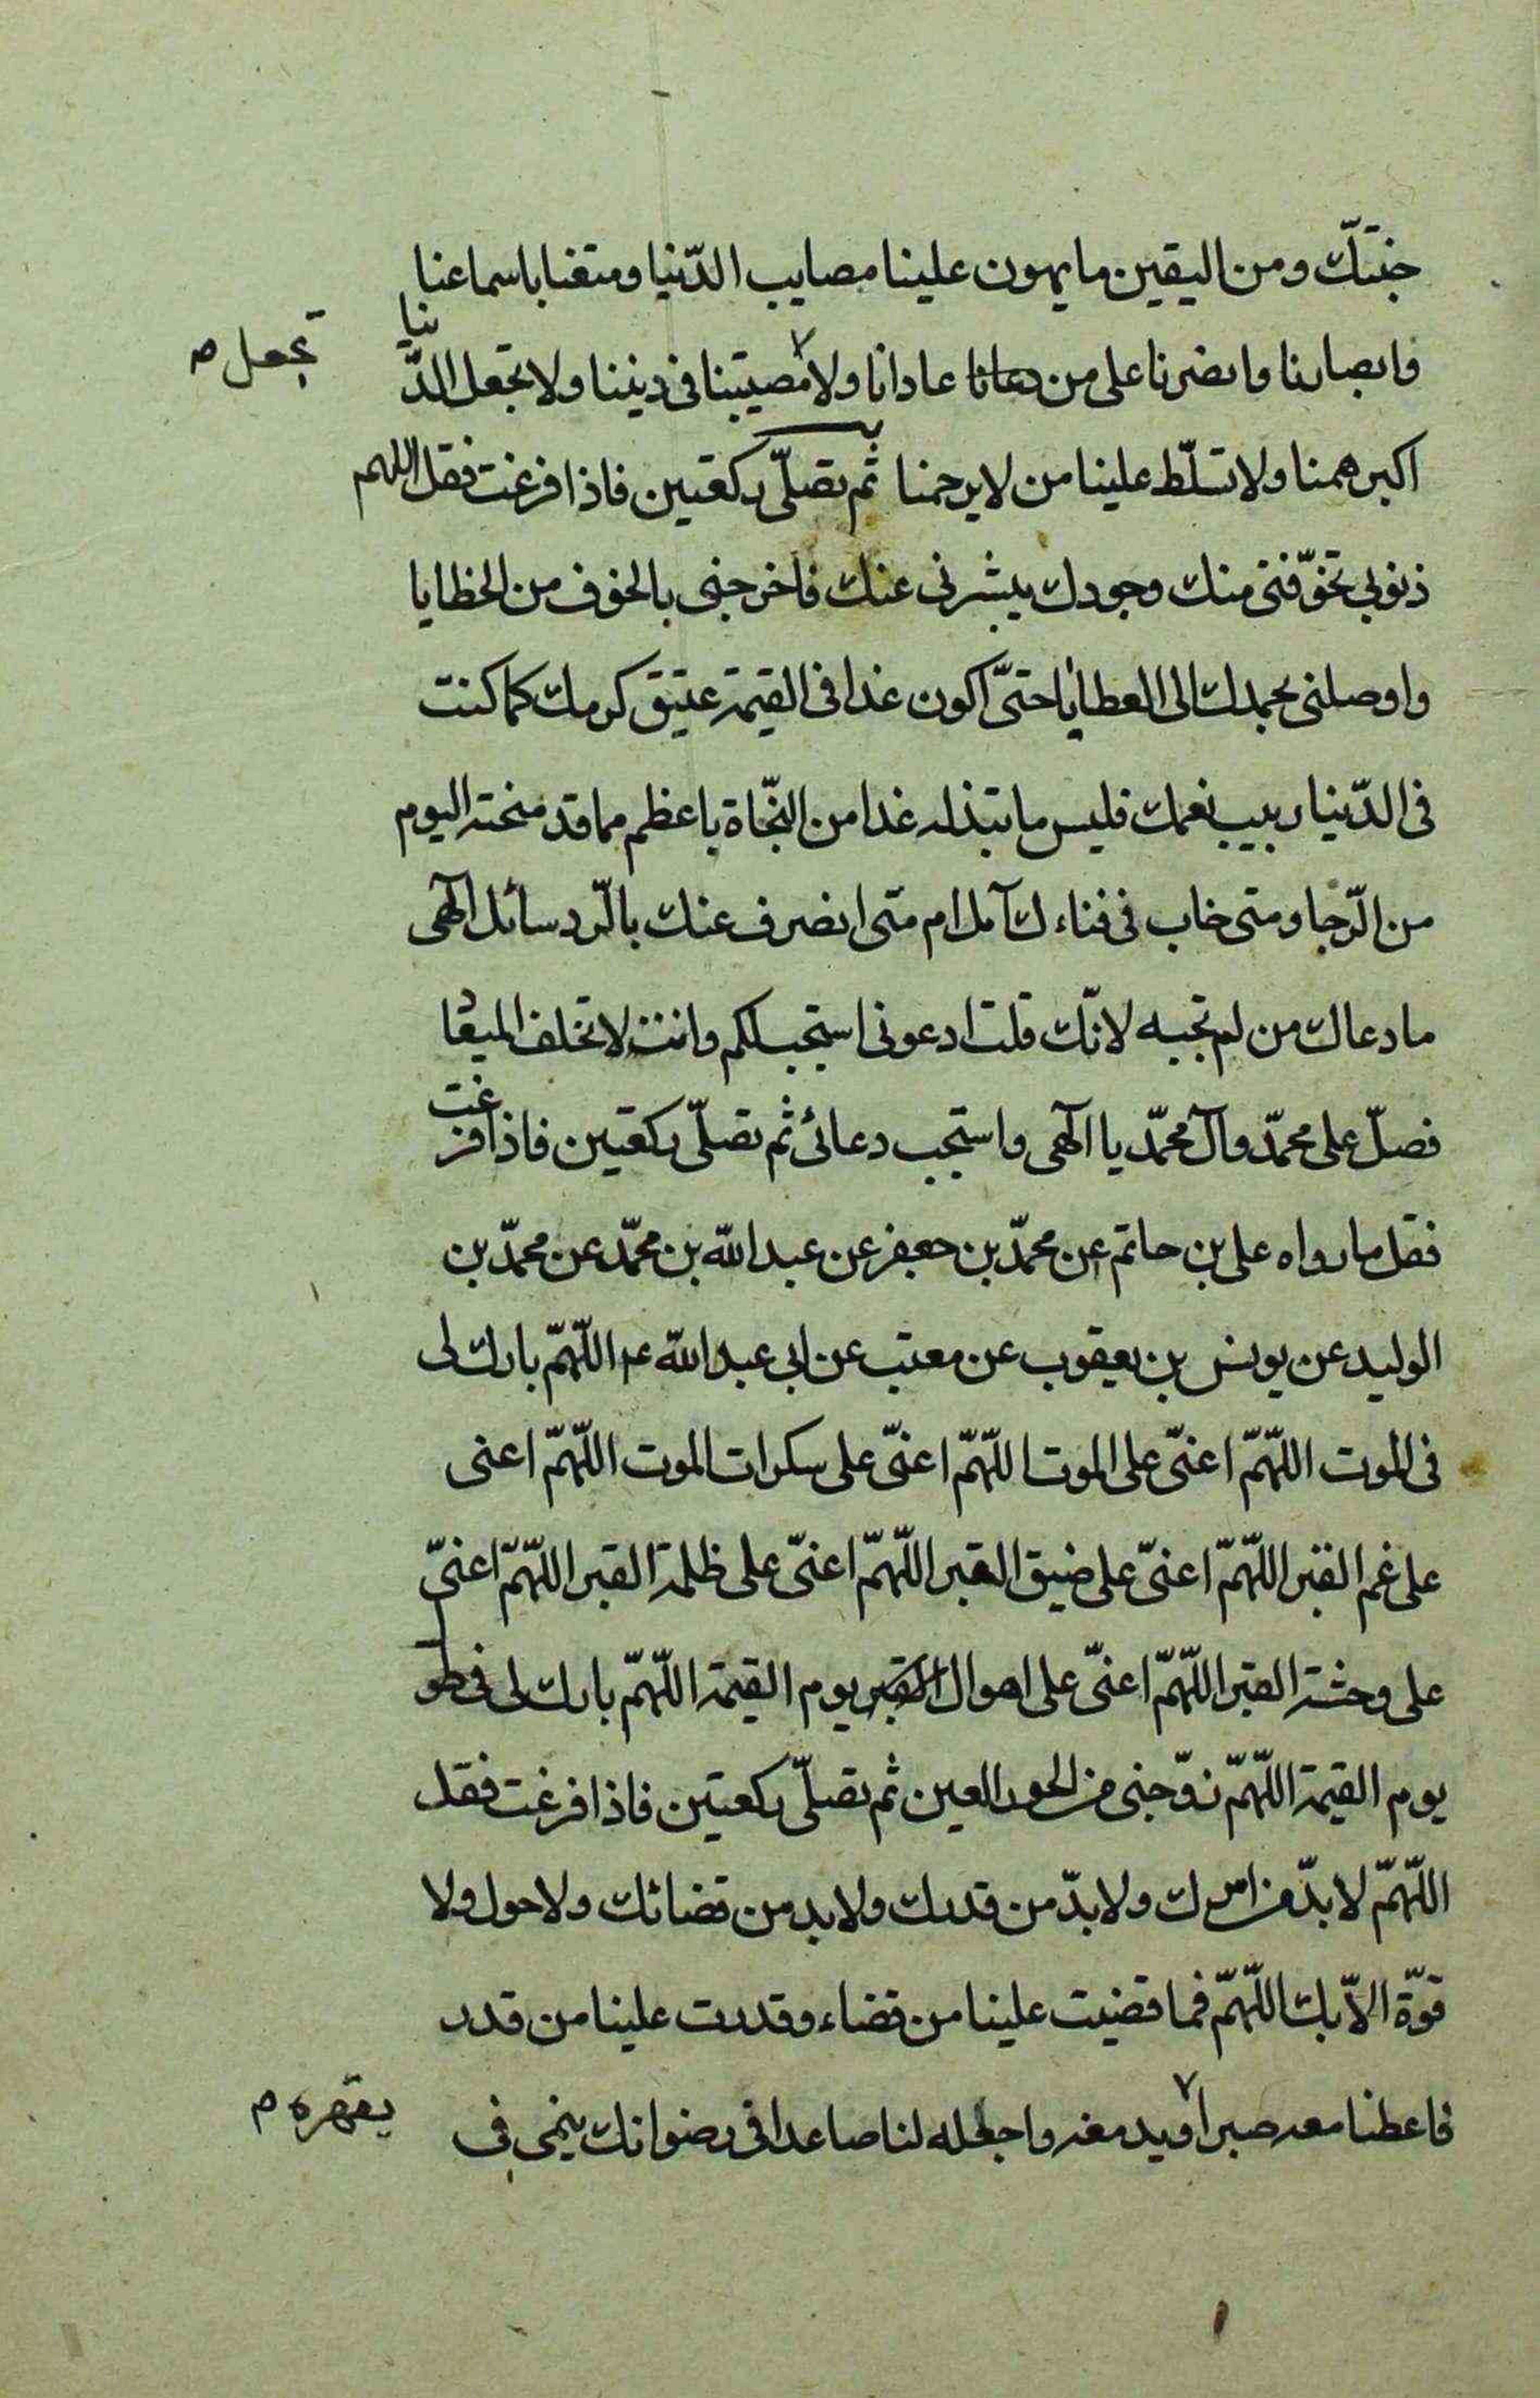 جنتكّ ومن اليقين ما يهون علينا مصايب الدّنيا ومتعنا باسماعنا
وابصارنا وانصرنا على من عادانا ولا مصيبتنا فى ديننا ولا تجعل الدّنيا
تجعل م
اكبر همنا ولا تسلّط علينا من لا يرحمنا ثم تصلّى ركعتين فاذا فرغت فقل اللهم
ذنوبى تخوّفنى منك وجودك يبشرنى عنك فاخرجنى بالخوف من الخطايا
واوصلنى بجودك الى العطايا حتىّ اكون غدا فى القيمة عتيق كرمك كما كنت
فى الدّنيا ربيب نعمك فليس ما تبتذله غدا من النّجاة باعظم مما قد منحته اليوم
من الرّجا ومتى خاب فى فناءك آمل ام متى انصرف عنك بالرّد سائل آلهى
ما دعاك من لم تجبه لانّك قلت ادعونى استجب لكم وانت لا تخلف الميعاد
فصلّ على محمّد وآل محمّد يا آلهى واستجب دعائى ثم تصلّى ركعتين فاذا فرغت
فقل ما رواه على بن حاتم عن محمّد بن جعفر عن عبد الله بن محمّد عن محمّد بن
الوليد عن يونس بن يعقوب عن معتب عن ابى عبد الله ع اللّهمّ بارك لى
فى الموت اللّهمّ اعنىّ على الموت اللّهمّ اعنىّ على سكرات الموت اللّهمّ اعنى
على غم القبر اللّهمّ اعنىّ على ضيق القبر اللّهمّ اعنىّ على ظلمة القبر اللّهمّ اعنىّ
على وحشة القبر اللّهمّ اعنىّ على اهوال يوم القيمة اللّهمّ بارك لى فى طول
يوم القيمة اللّهمّ زوّجنى من الحور العين ثم تصلّى ركعتين فاذا فرغت فقل
اللّهمّ لا بدّ من امرك ولا بدّ من قدرك ولا بد من قضائك ولا حول ولا
قوّة الاّ بك اللّهمّ فما قضيت علينا من قضاء وقدرت علينا من قدر
فاعطنا معه صبرا واجعله لنا صاعدا فى رضوانك ينمى فى
يقهره م